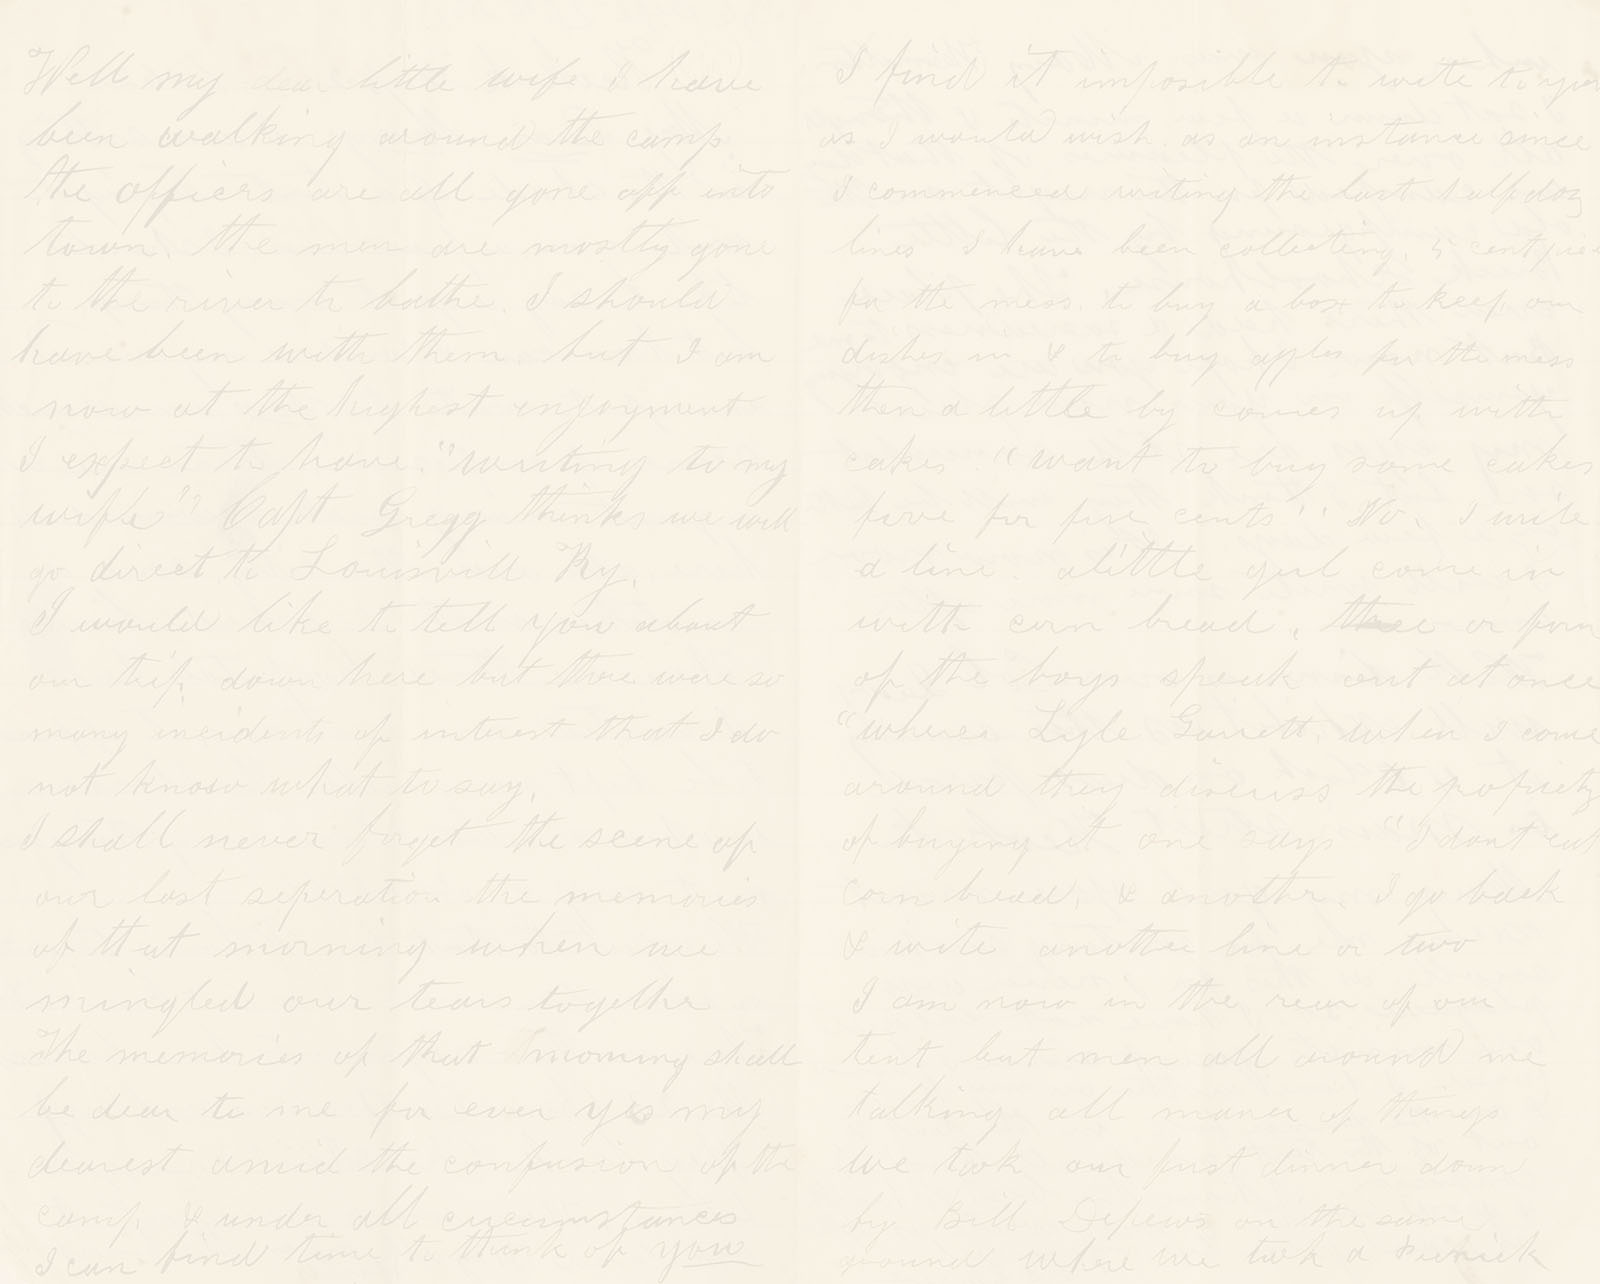 Well my dear little wife I have
been walking around the camp
the officers are all gone off into
town. the men are mostly gone
to the river to bathe. I should
have been with them. but I am
now at the highest enjoyment
I expect to have. "writing to my
wife" Capt Gregg thinks we will
go direct to Louisvill Ky.
I would like to tell you about
our trip down here but there were so
many incidents of interest that I do
not know what to say.
I shall never forget the scene of
our last seperation the memories
of that morning when we
mingled our tears together
The memories of that morning shall
be dear to me for ever yes my
dearest amid the confusion of the
camp. & under all circumstances
I can find time to think of you
I find it imposible to write to you
as I would wish. as an instance since
I commenced writing the last half doz
lines I have been collecting. 5 cent pieces
for the mess. to buy a box to keep our
dishes in & to buy apples for the mess
then a little by comes up with
cakes. "want to buy some cakes
five for five cents" No. I write
a line. a little girl come in
with corn bread. three or four
of the boys speak out at once
"wheres Lyle Garrett. when I come
around they discuss the propriety
of buying it one says "I dont eat
corn bread. & another. I go back
& write another line or two
I am now in the rear of our
tent but men all around me
talking all maner of things
We took our first dinner down
by Bill Depews on the same
ground where we took a Picnick